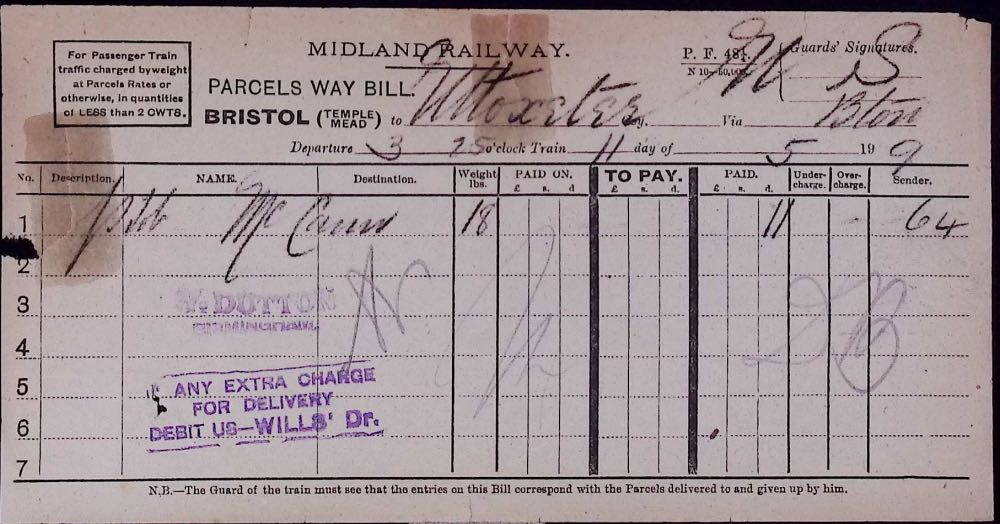 For Passenger Train
traffic charged by weight
at Parcels Rates or
otherwise, in quantities
of LESS than 2 CWTS.
MIDLAND RAILWAY.
P. F. 481.
N 10—50,000.
Guards' Signatures.
PARCELS WAY BILL.
BRISTOL (TEMPLE MEAD) to Uttoxeter Via Bton
Departure 3 25 o'clock Train 11 day of 5 19 9
No. Description. NAME. Destination. Weight lbs. PAID ON. £ s. d. TO PAY. £ s. d. PAID. £ s. d. Under-charge. Over-charge. Sender.
1 McCann 18 11 - 64
2
3
4
5
6
7
W. DUTTON
BIRMINGHAM.
ANY EXTRA CHARGE
FOR DELIVERY
DEBIT US—WILLS' Dr.
N.B.—The Guard of the train must see that the entries on this Bill correspond with the Parcels delivered to and given up by him.